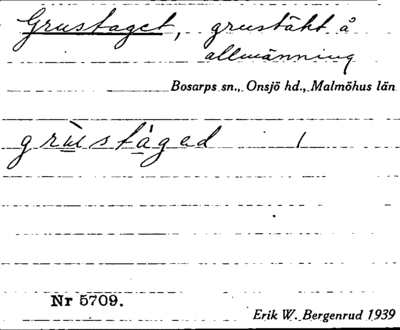 Grustaget, grustäkt å
allmänning
Bosarps sn., Onsjö hd., Malmöhus län
grùstàgad 1
Nr 5709.
Erik W. Bergenrud 1939